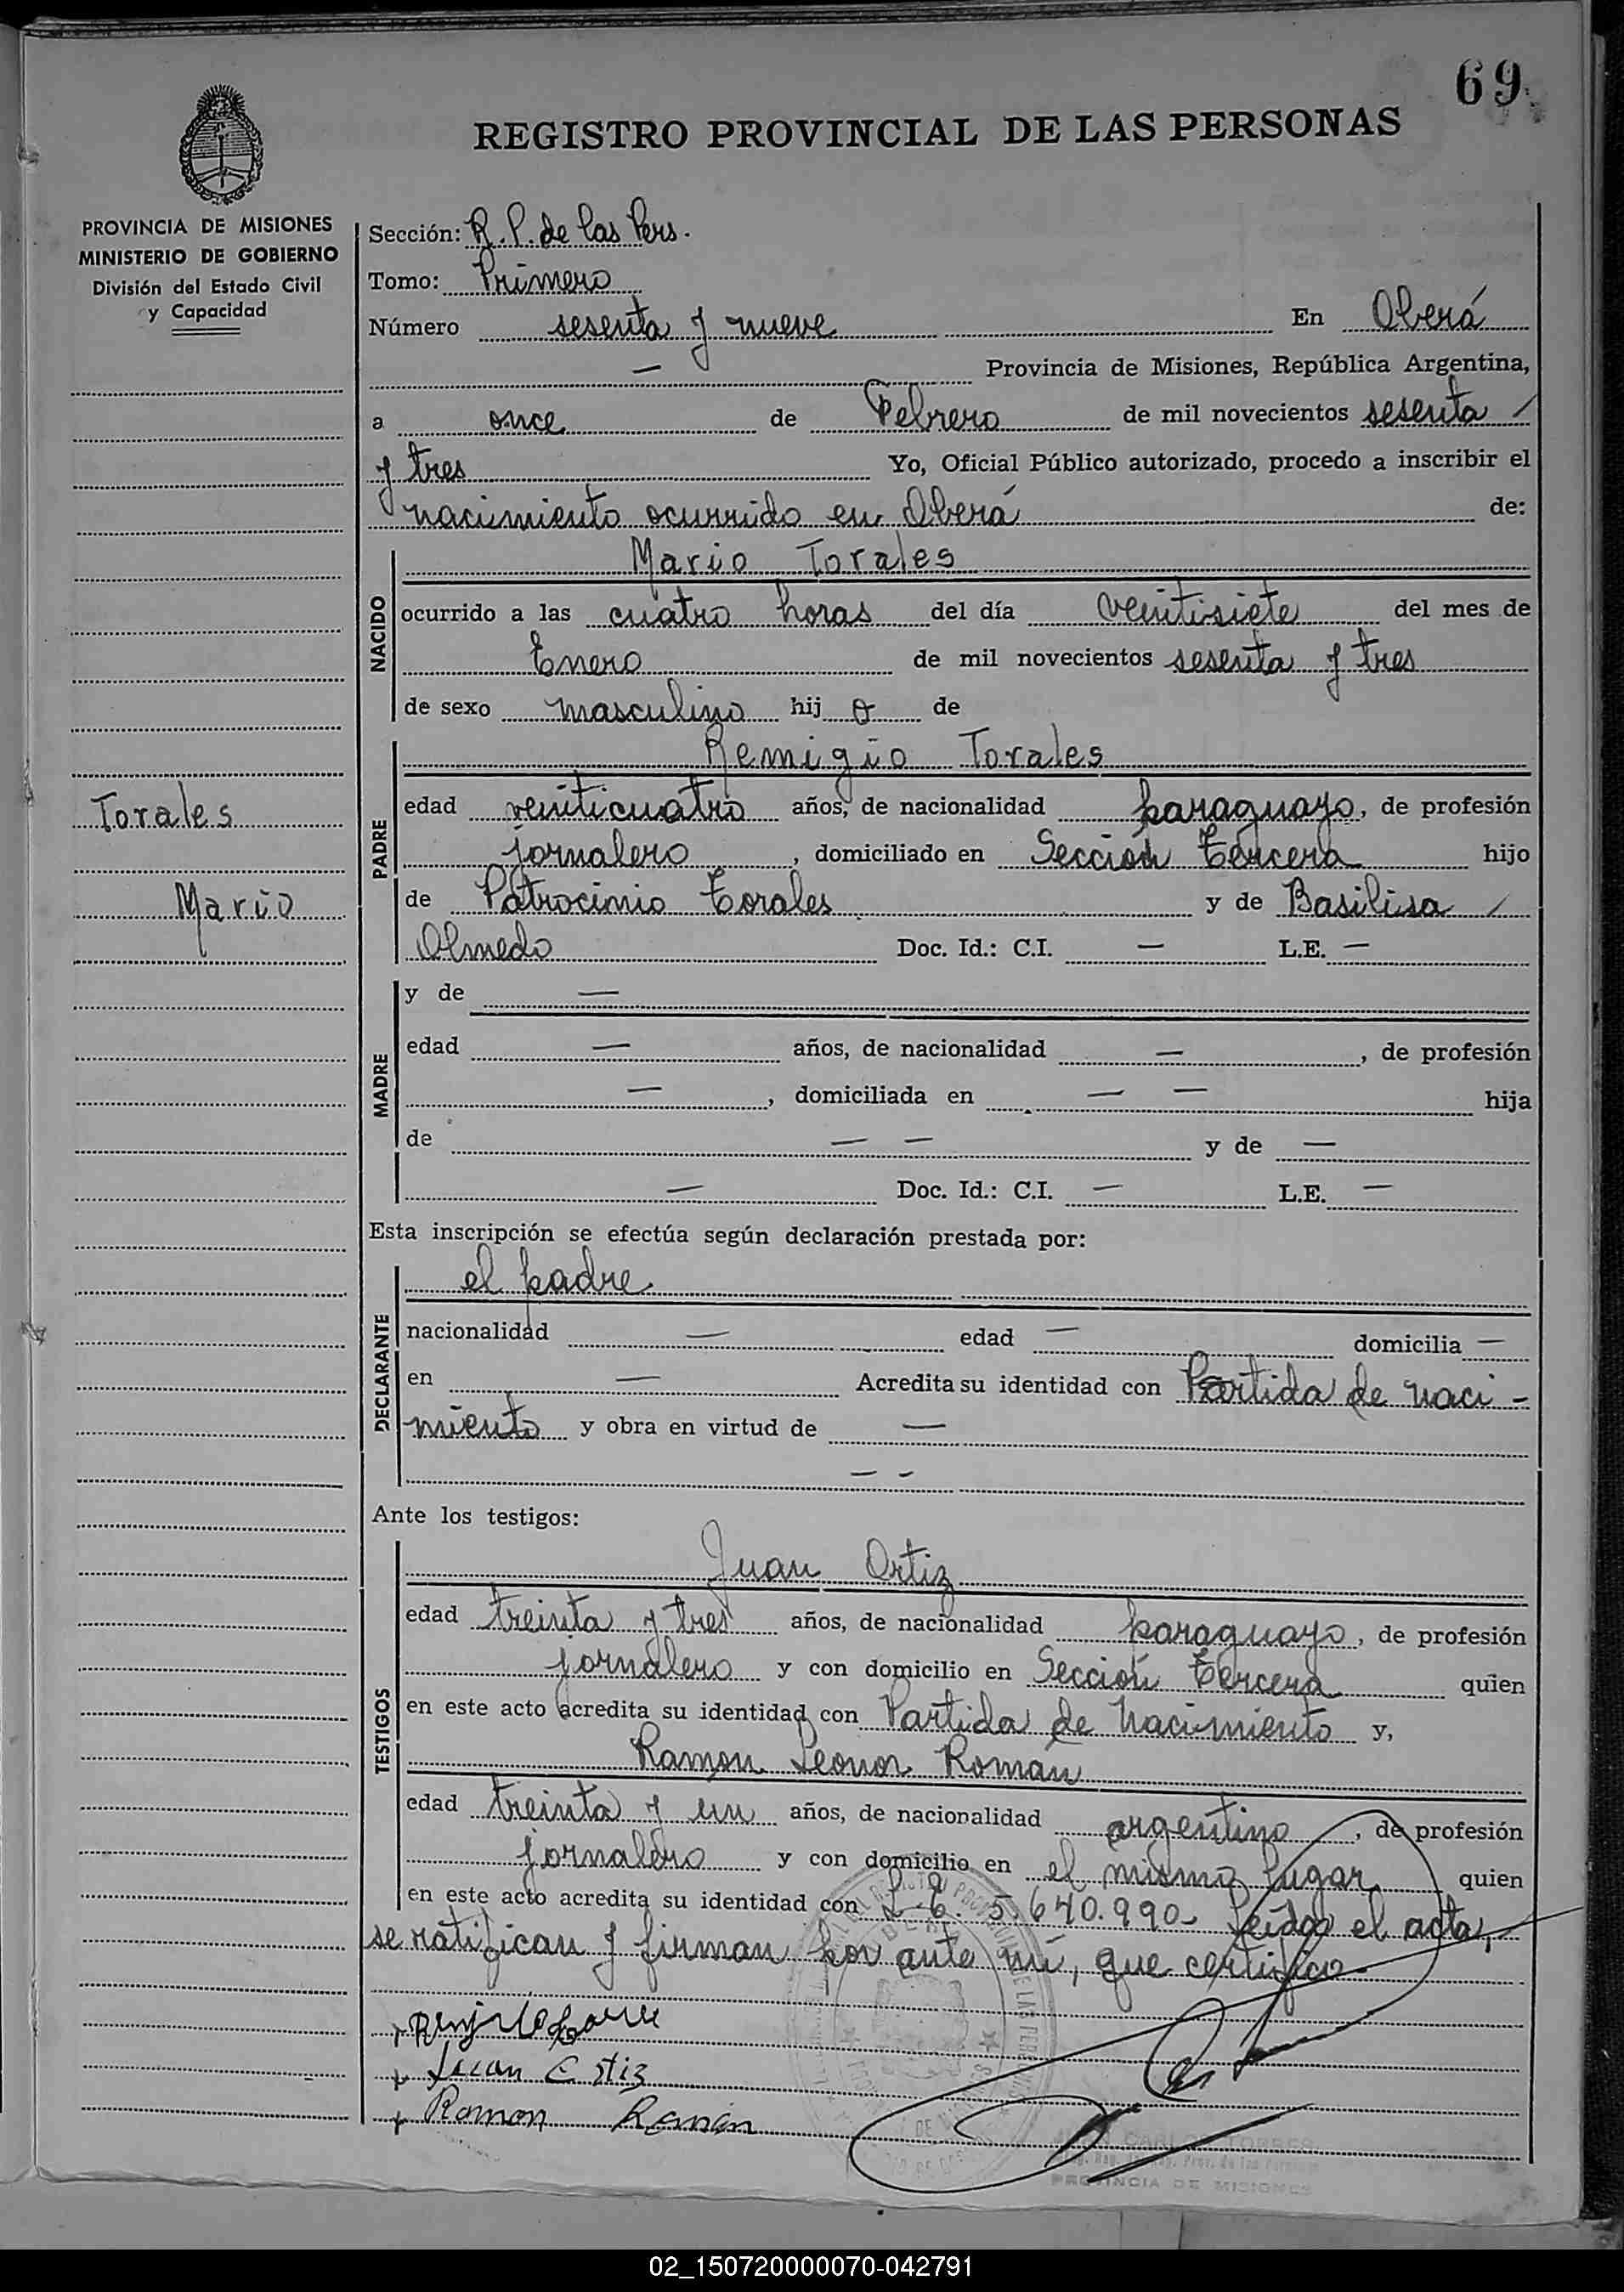 69
REGISTRO PROVINCIAL DE LAS PERSONAS
PROVINCIA DE MISIONES
MINISTERIO DE GOBIERNO
División del Estado Civil
y Capacidad
Sección: R. P. de las Pers.
Tomo: Primero
Número sesenta y nueve En Oberá
— Provincia de Misiones, República Argentina,
a once de Febrero de mil novecientos sesenta /
y tres Yo, Oficial Público autorizado, procedo a inscribir el
nacimiento ocurrido en Oberá de:
NACIDO
Mario Torales
ocurrido a las cuatro horas del día veintisiete del mes de
Enero de mil novecientos sesenta y tres
de sexo masculino hij o de
PADRE
Remigio Torales
Torales
Mario
edad veinticuatro años, de nacionalidad paraguayo, de profesión
jornalero, domiciliado en Sección Tercera hijo
de Patrocinio Torales y de Basilisa /
Olmedo Doc. Id.: C.I. — L.E. —
MADRE
y de —
edad — años, de nacionalidad —, de profesión
—, domiciliada en — — hija
de — — y de —
— Doc. Id.: C.I. — L.E. —
Esta inscripción se efectúa según declaración prestada por:
DECLARANTE
el padre
nacionalidad — edad — domicilia —
en — Acredita su identidad con Partida de naci-
miento y obra en virtud de —
— -
Ante los testigos:
TESTIGOS
Juan Ortiz
edad treinta y tres años, de nacionalidad paraguayo, de profesión
jornalero y con domicilio en Sección Tercera quien
en este acto acredita su identidad con Partida de Nacimiento y,
Ramon Leonor Román
edad treinta y un años, de nacionalidad argentino, de profesión
jornalero y con domicilio en el mismo lugar quien
en este acto acredita su identidad con L. E. 5.640.990- Leída el acta,
se ratifican y firman por ante mí, que certifico.
Ramon Román
CARLOS TORRES
PROVINCIA DE MISIONES
02_150720000070-042791